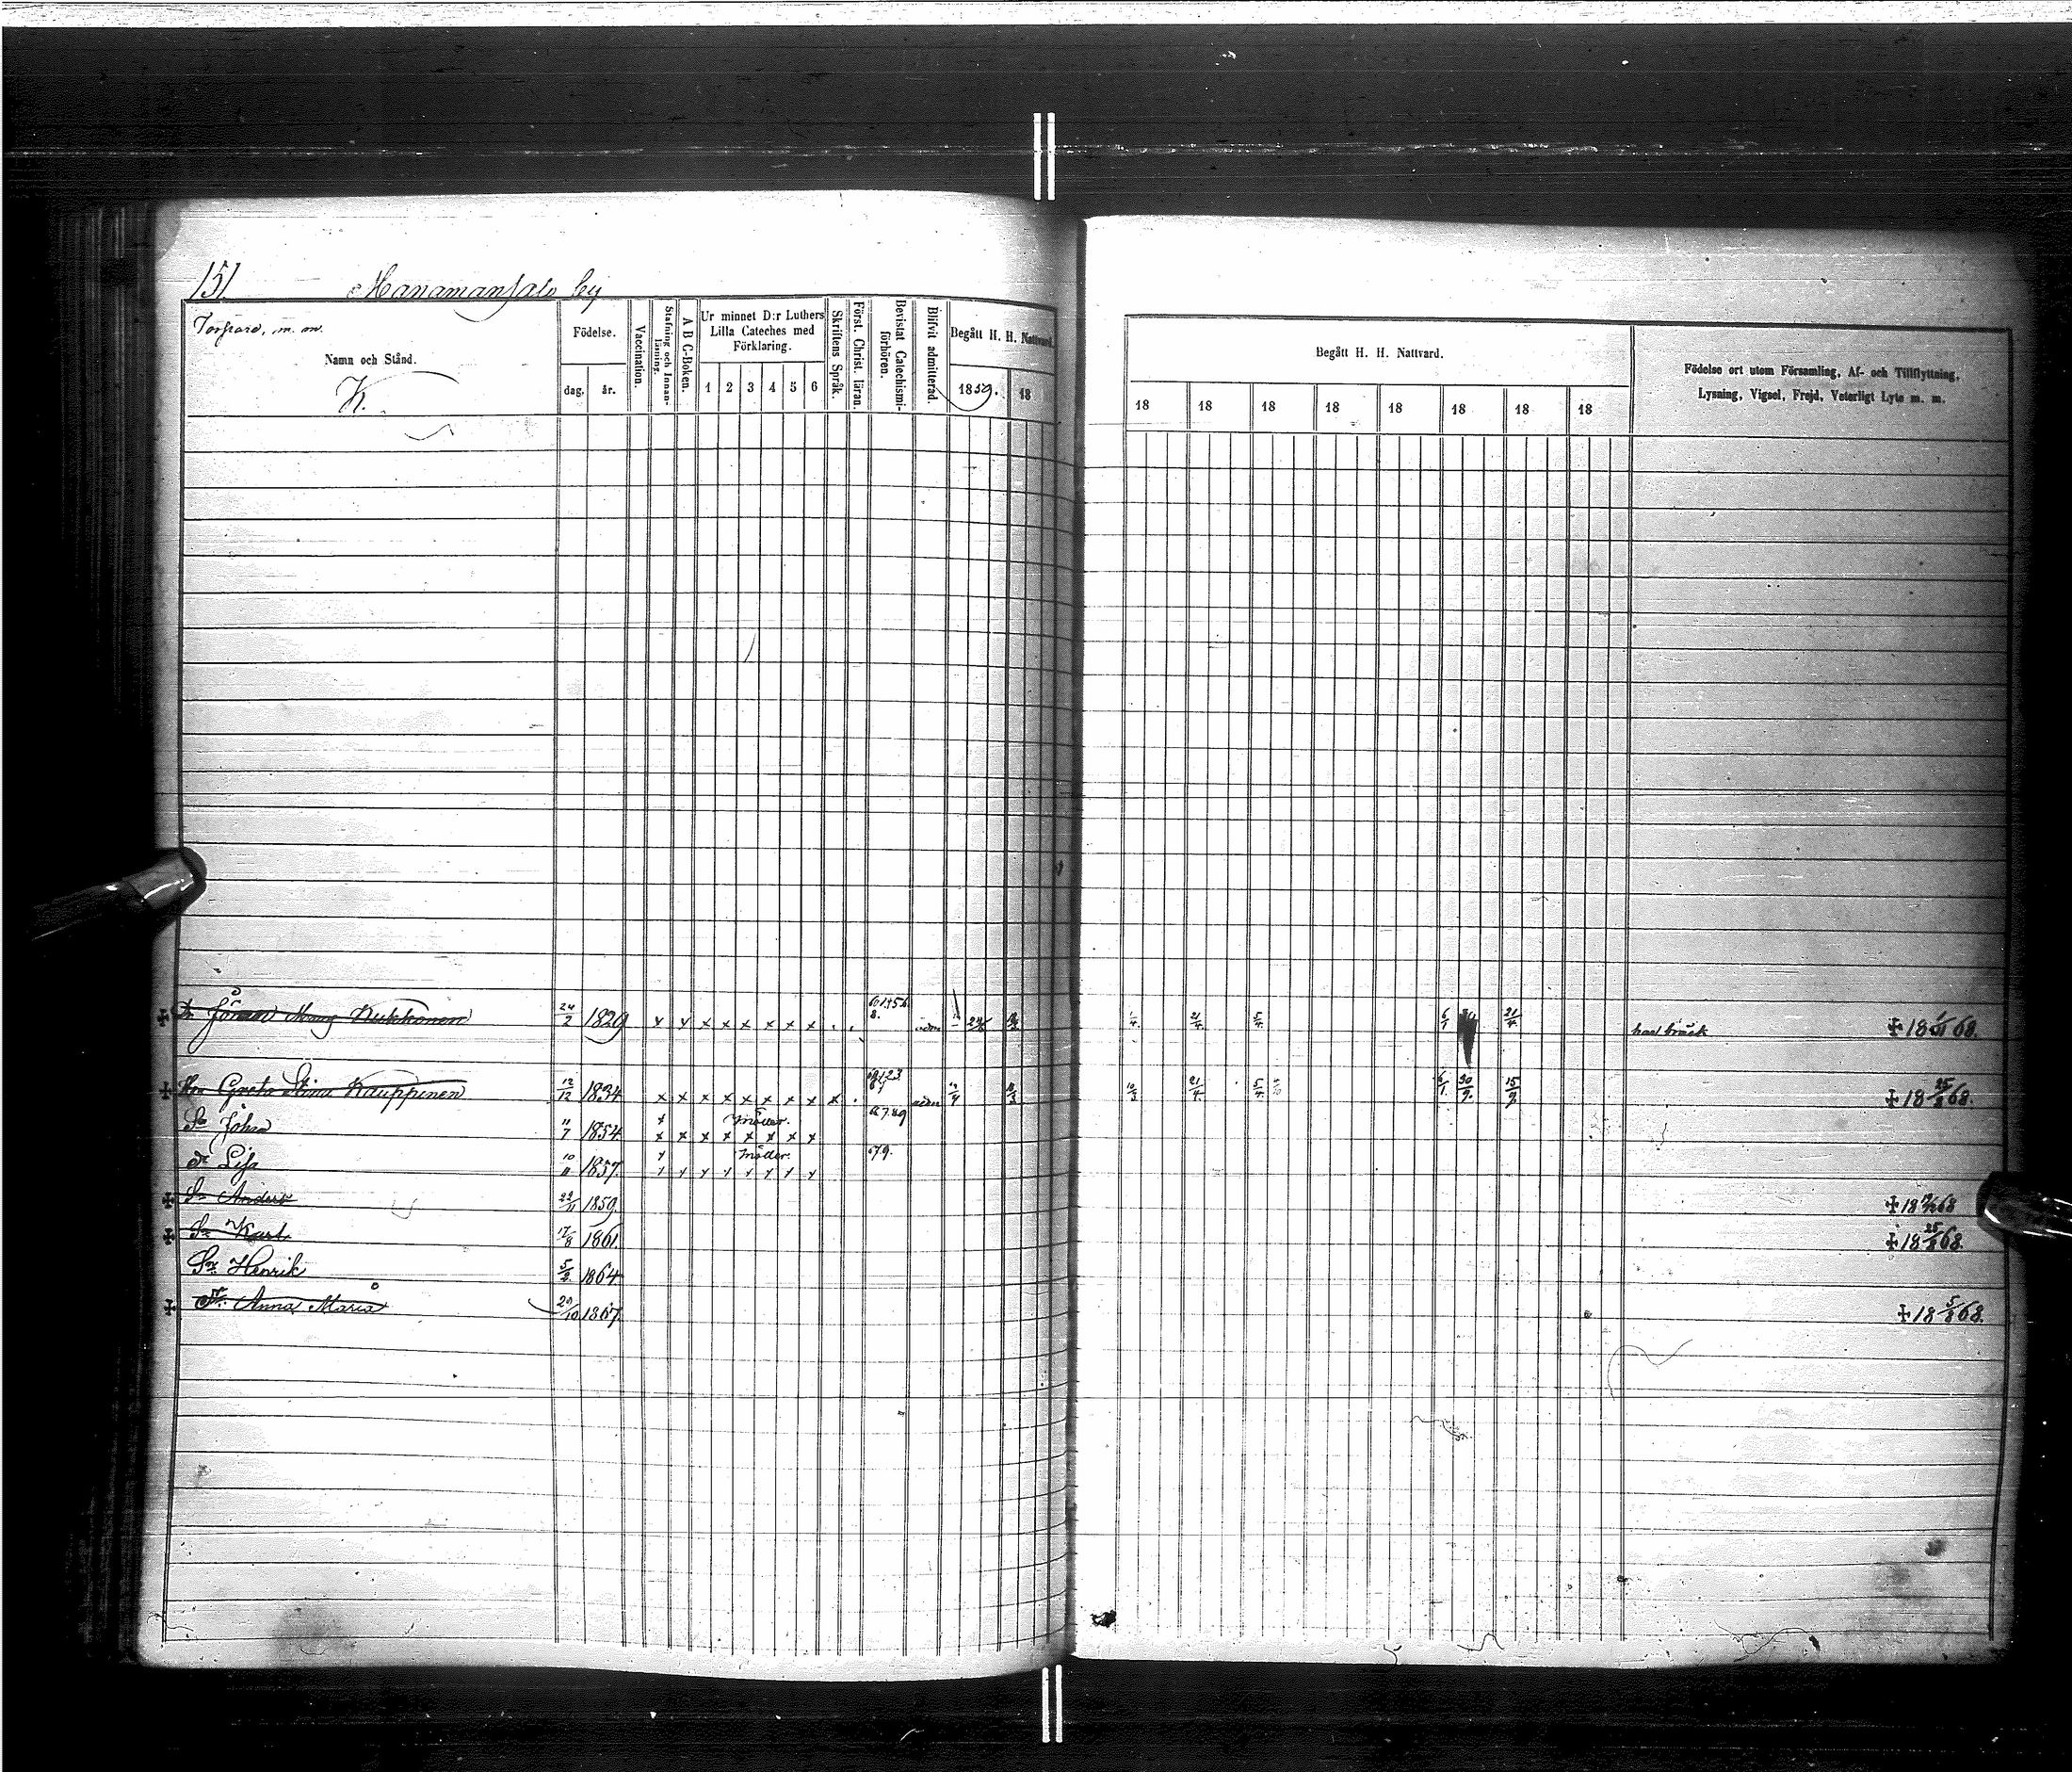 151. Manamansalo by
Torpare, m. m.
Namn och Stånd.
K.
Födelse.
dag. år.
Vaccination.
Stafning och Innanläsning.
A B C-Boken.
Ur minnet D:r Luthers
Lilla Cateches med
Förklaring.
1 2 3 4 5 6
Skriftens Språk.
Först. Christ. läran.
Bevistat Catechismi-förhören.
Blifvit admitterad.
Begått H. H. Nattvard.
1859. 18
Begått H. H. Nattvard.
18 18 18 18 18 18 18 18
Födelse ort utom Församling, Af- och Tillflyttning,
Lysning, Vigsel, Frejd, Veterligt Lyte m. m.
Kukkonen 24/2 1829 x x x x x x x x 1/4 21/4 5/4 6/1 21/4 har bråck 68.
Greta Stina Kauppinen 12/12 1834 x x x x x x x x x 10/3 21/4 5/4 6/1 30/9 15/9 18 25/8 68.
Sn Johan 11/7 1854 x x x x x x x x
Dr Lisa 10/11 1857.
Sn Anders 22/11 1859. 68
Sn Karl 17/8 1861. 18 25/8 68.
Sn Henrik 5/2 1864
Dr Anna Maria 29/10 1867. 18 5/8 68.